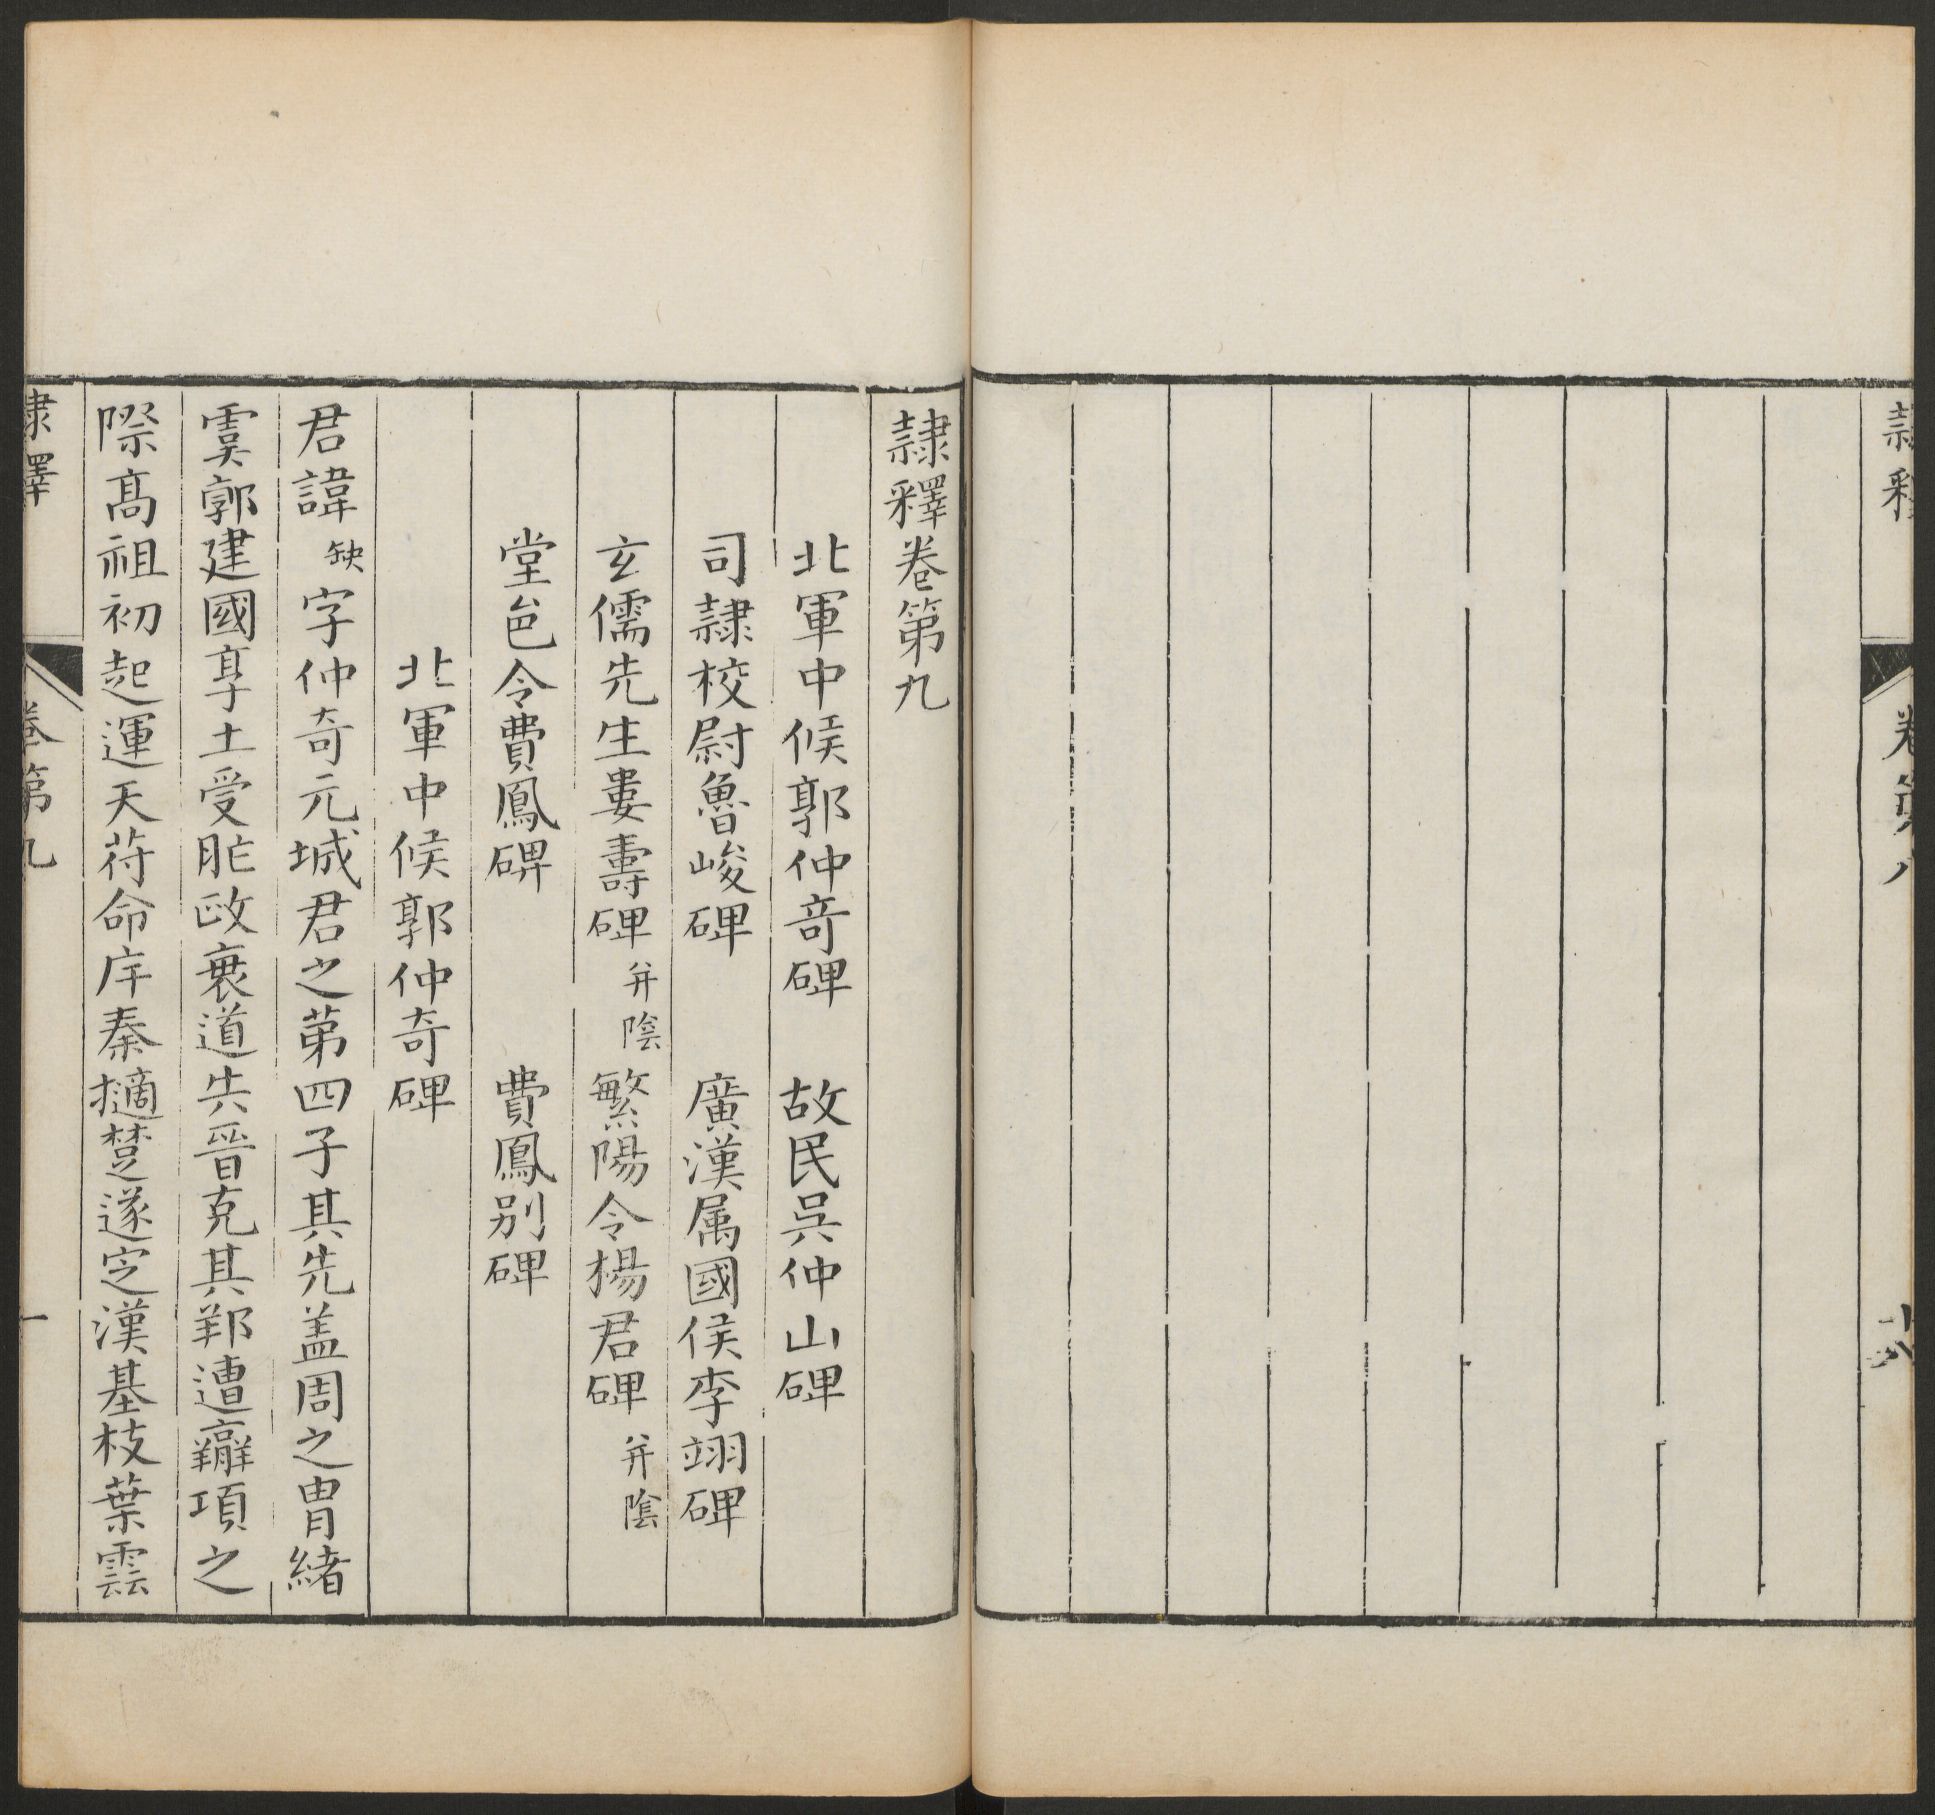 隷釋
卷第八
隷釋卷第九
北軍中候郭仲竒碑　故民吳仲山碑
司隷校尉魯峻碑　廣漢属國侯李翊碑
玄儒先生婁壽碑并陰　繁陽令楊君碑并陰
堂邑令費鳳碑　費鳳別碑
北軍中候郭仲奇碑
君諱缺字仲奇元城君之苐四子其先盖周之胄緒
虞郭建國享土受氓政衰道失晉克其邦遭項之
際髙祖初起運天苻命斥秦擿楚遂定漢基枝葉雲
隷釋
卷第九
一